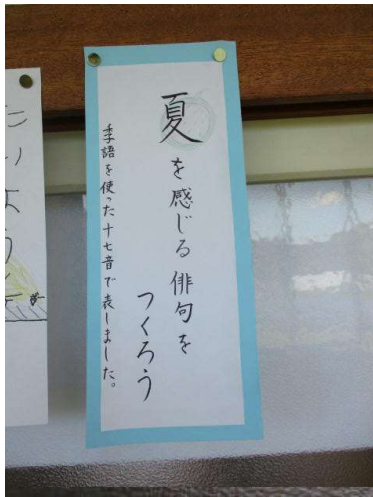 夏を感じる俳句を
つくろう
季語を使った十七音で表しました。
たりようと